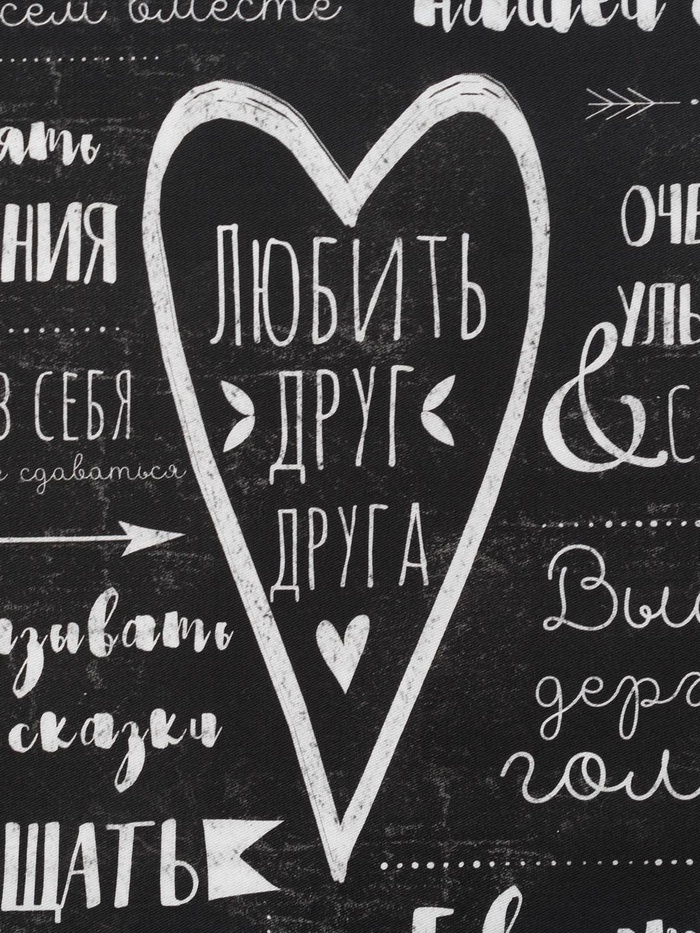 всем вместе
нашей
ять
НИЯ
В СЕБЯ
не сдаваться
азывать
сказки
ЩАТЬ
ЛЮБИТЬ
ДРУГ
ДРУГА
ОЧЕ
УЛЫ
& С
Выс
держ
гол